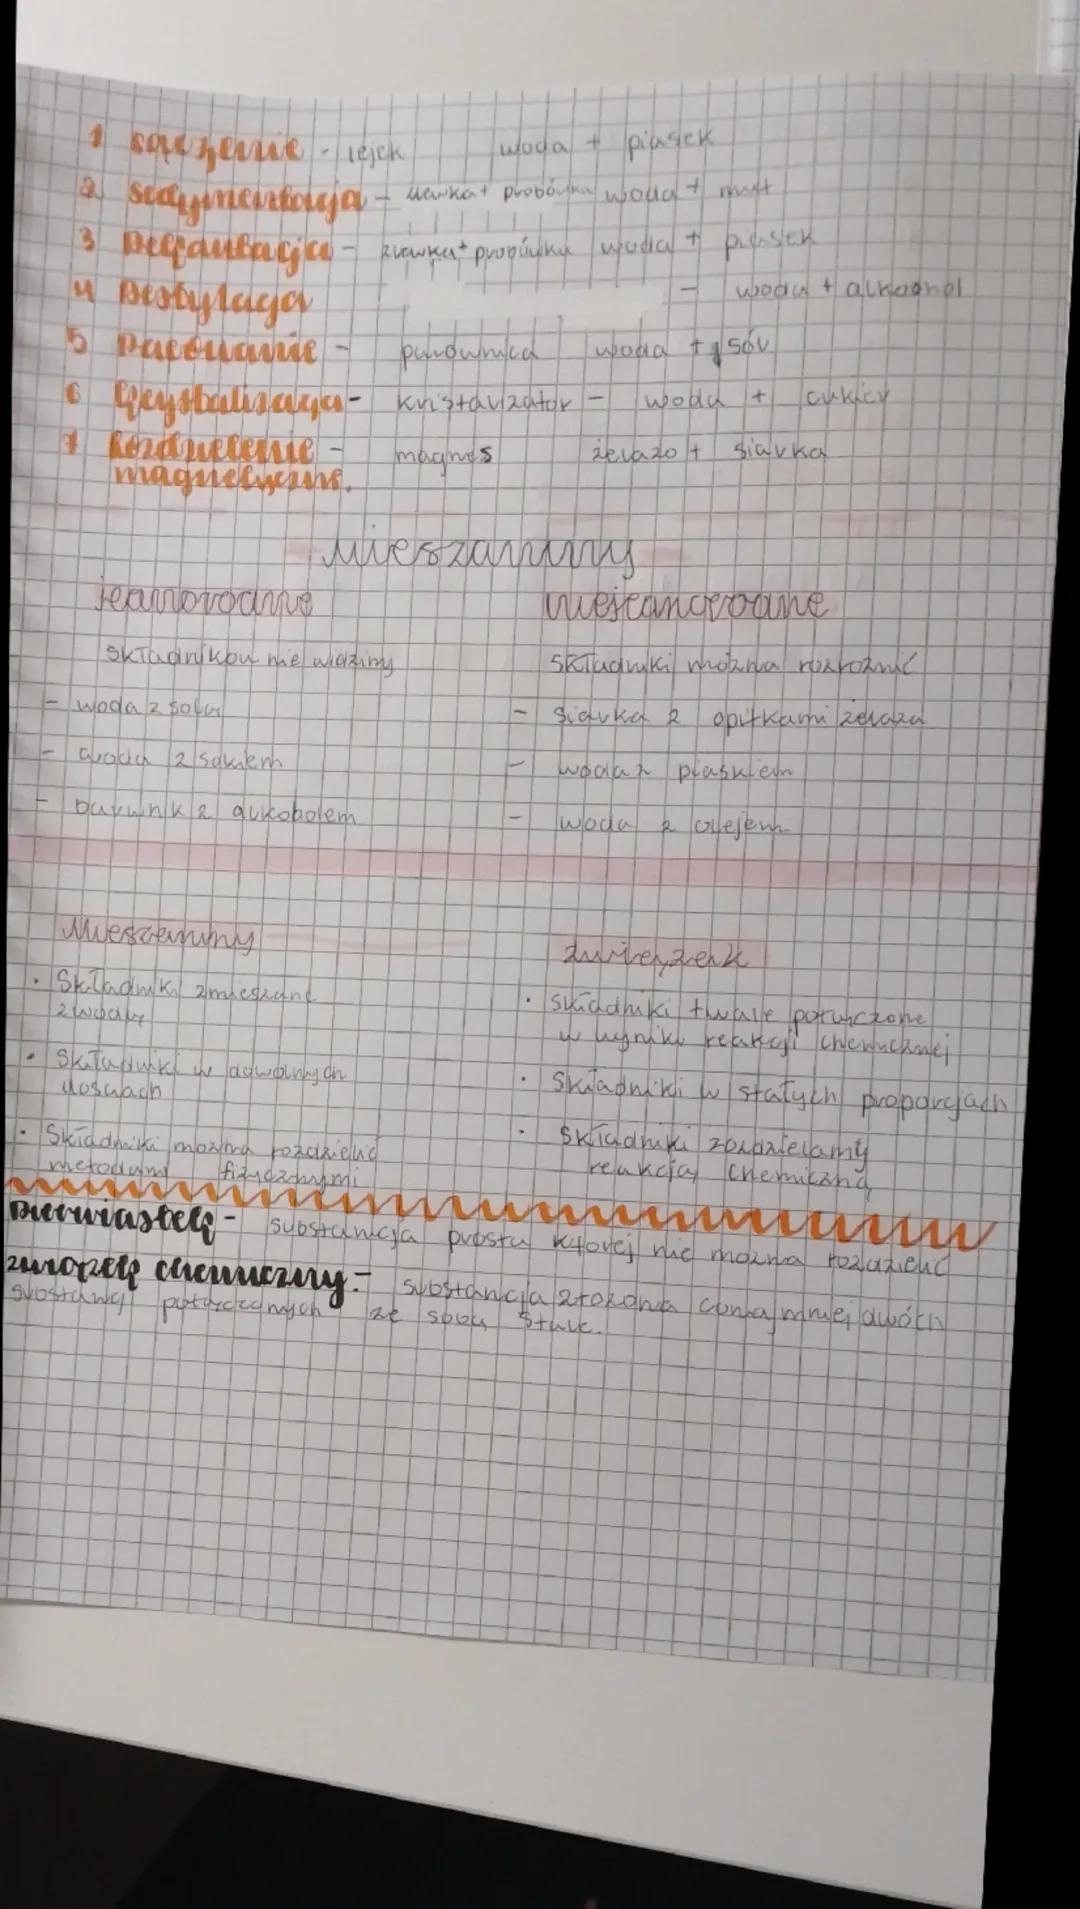 1 sączenie - lejek woda + piasek
2 sedymentacja - zlewka + probówka woda + mąt
3 Dekantacja - zlewka + probówka woda + piasek
4 Destylacja - woda + alkoohol
5 Parowanie - parownica woda + sól
6 Krystalizacja - kristalizator - woda + cukier
7 Rozdzielenie - magnes żelazo + siarka
magnetyczne.
Mieszaniny
jednorodne niejednorodne
składników nie widzimy składniki można rozrożnić
- woda z solą - siarka z opiłkami żelaza
- woda z sokiem - woda z piaskiem
- barwnik z alkoholem - woda z olejem
Mieszaniny związek
• Składniki zmieszane • składniki trwale połączone
w wyniki reakcji chemicznej
• Składniki w dowolnych • Składniki w stałych proporcjach
ilościach
• Składniki można rozdzielić • składniki rozdzielamy
metodami fizycznymi reakcją chemiczną
Pierwiastek - substancja prosta której nie można rozdzielić
związek chemiczny - substancja złożona conajmniej dwóch
substancji połączonych ze sobą stale.